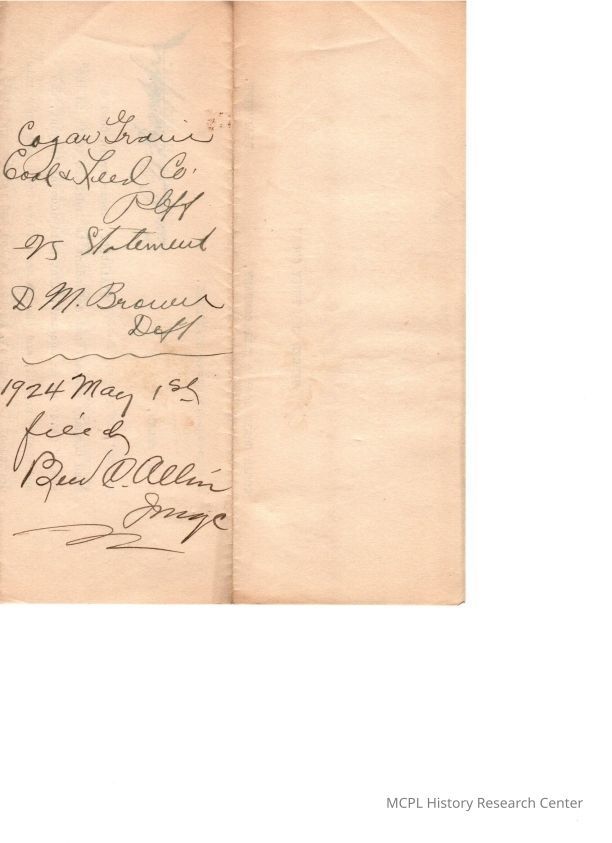 Cogar Grain
Coal & Feed Co.
Plff
vs Statement
D M. Brown
Deff
1924 May 1st
filed
Ben D. Allin
MCPL History Research Center